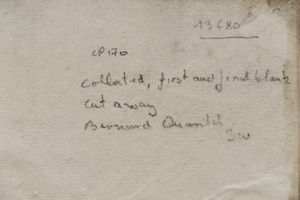 13680
CP170
collated, first and final blank
cut away
Bernard Quaritch